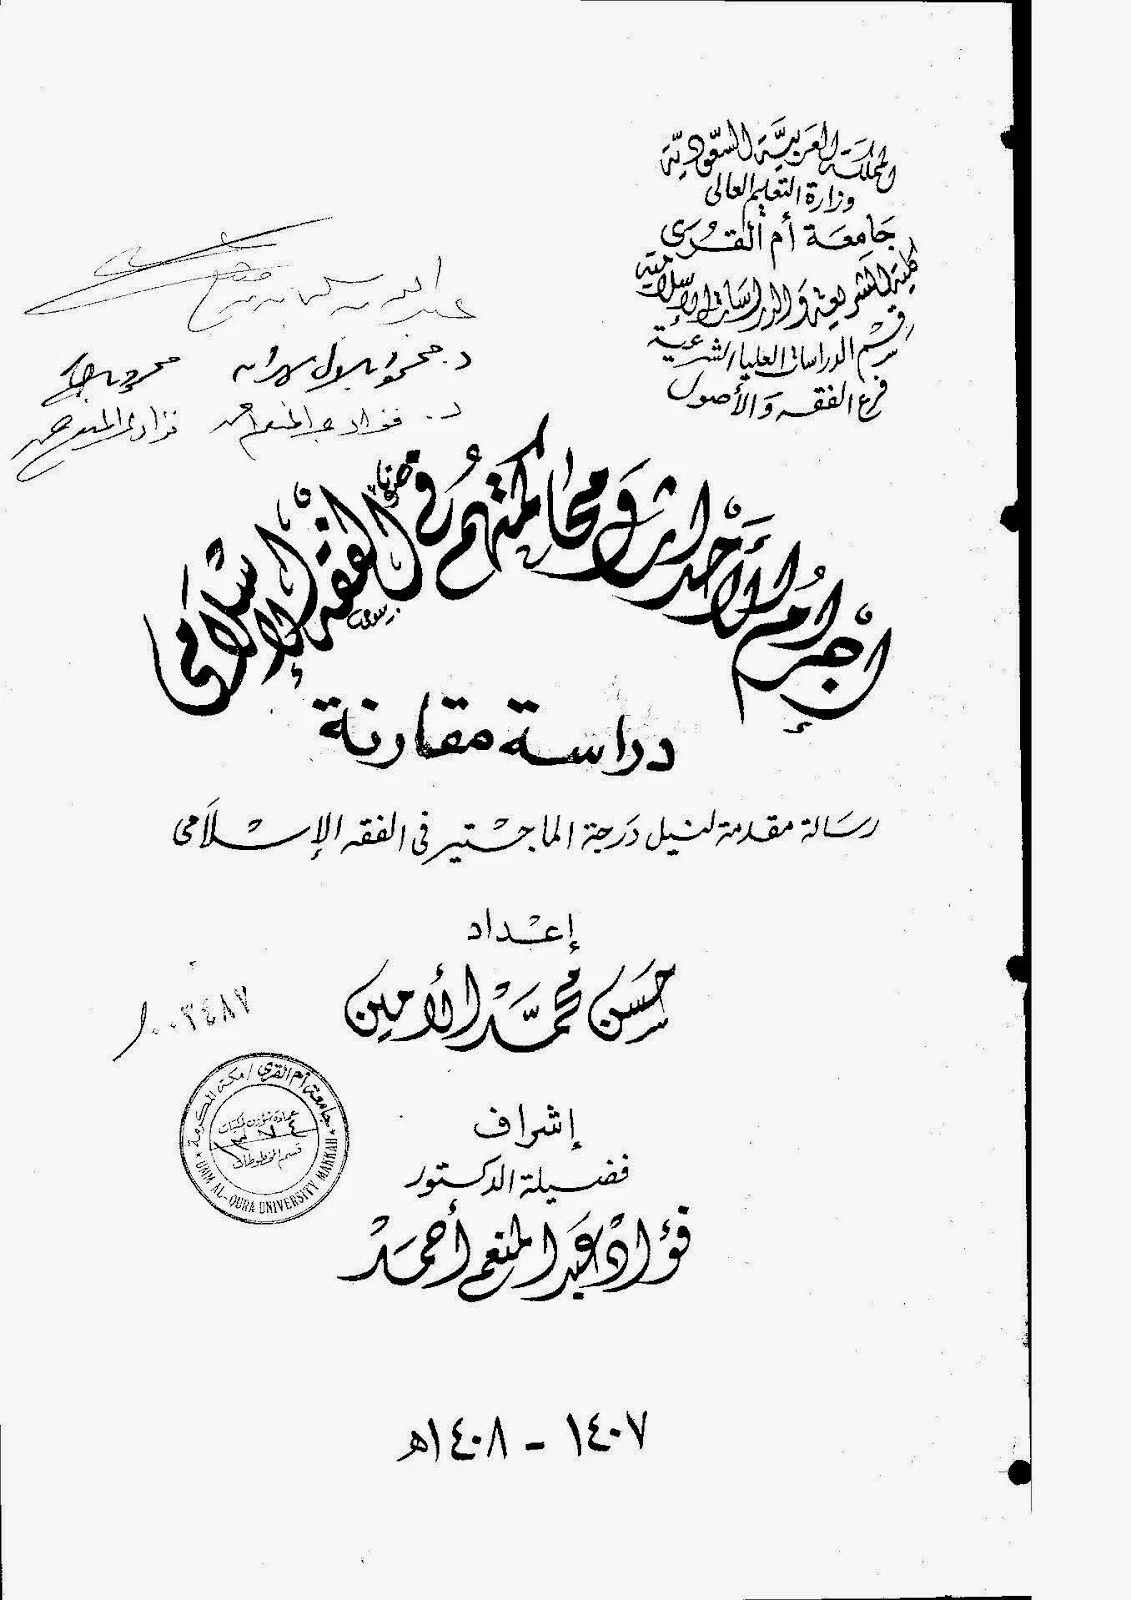 المملكة العربية السعودية
وزارة التعليم العالى
جامعة أم القرى
كلية الشريعة والدراسات الإسلامية
قسم الدراسات العليا الشرعية
فرع الفقه والأصول
عبد الله بن
د. محمود بلال مهران
د. فؤاد عبد المنعم أحمد
إجرام الأحداث ومحاكمتهم فى الفقه الإسلامى
دراسة مقارنة
رسالة مقدمة لنيل درجة الماجستير فى الفقه الإسلامى
إعداد
حسن محمد الأمين
٠٠٣٤٨٧
جامعة أم القرى / مكة المكرمة
عمادة شؤون المكتبات
قسم المخطوطات
UMM AL-QURA UNIVERSITY MAKKAH
إشراف
فضيلة الدكتور
فؤاد عبد المنعم أحمد
١٤٠٧ - ١٤٠٨هـ